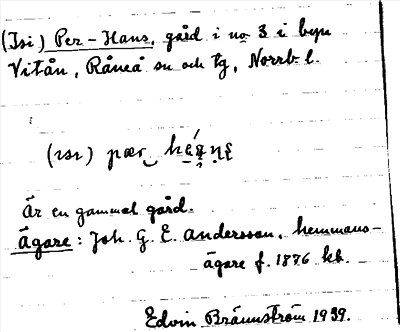 (Isi) Per-Hans, gård i no 3 i byn
Vitån, Råneå sn och tg, Norrb. l.
(ɪsɪ) pær
Är en gammal gård.
Ägare: Joh. G. E. Andersson, hemmans-
ägare f. 1876 kb.
Edvin Brännström 1939.